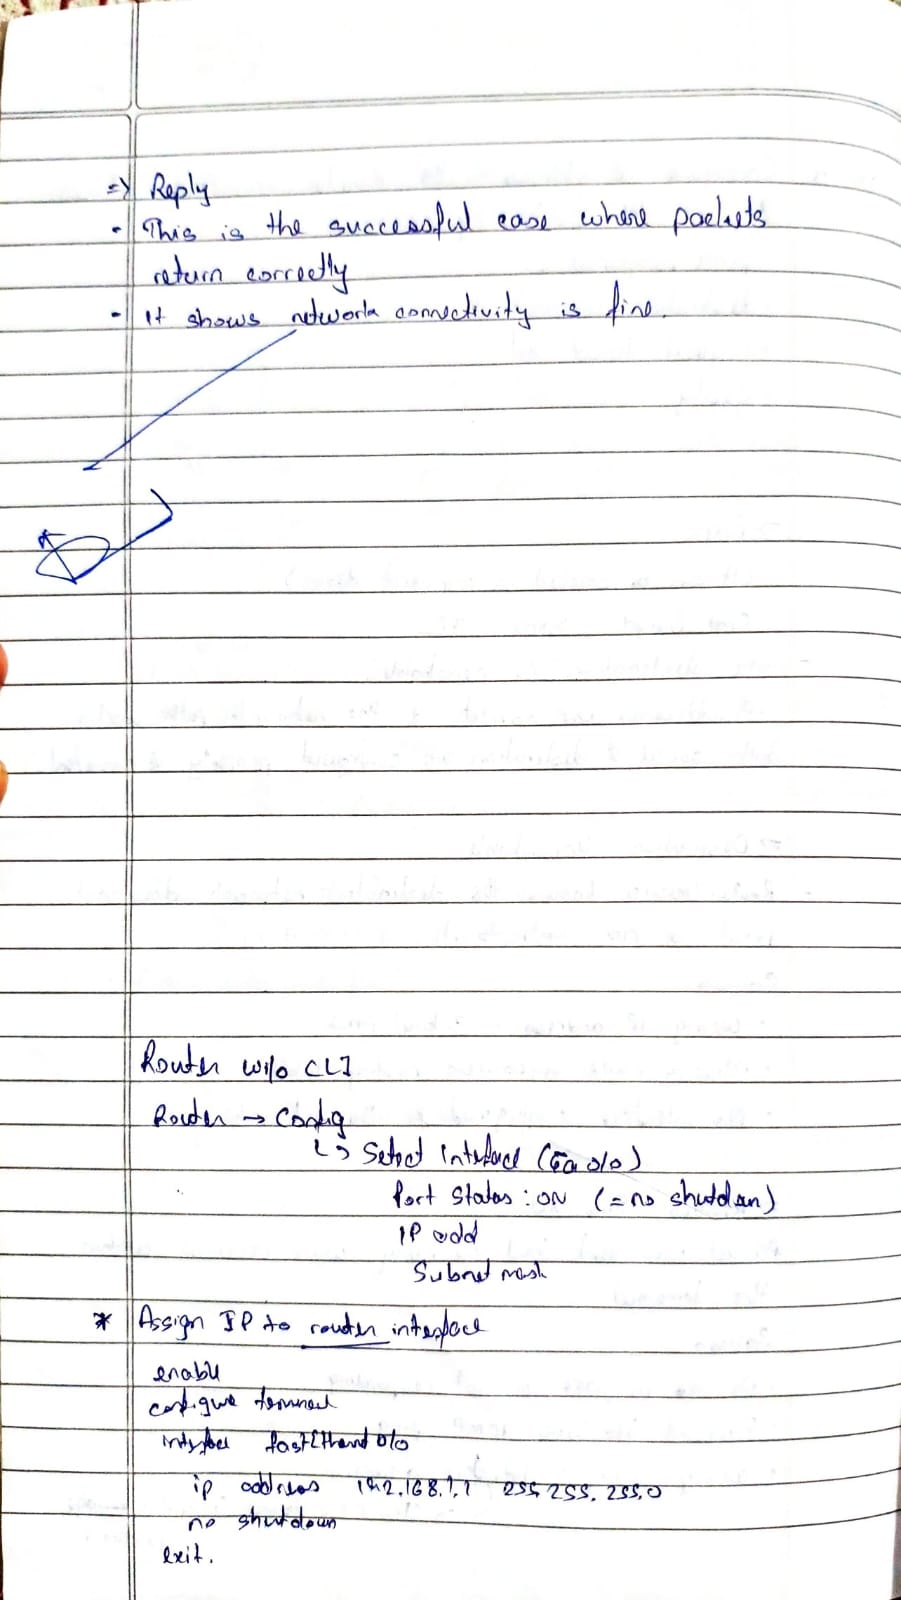 => Reply
- This is the successful case where packets
return correctly
- It shows network connectivity is fine.
Router w/o CLI
Router → Config
↳ Select Interface (Fa 0/0)
Port Status : ON (= no shutdown)
IP add
Subnet mask
* Assign IP to router interface
enable
configure terminal
interface fastEthernet 0/0
ip address 192.168.1.1 255.255.255.0
no shutdown
exit.